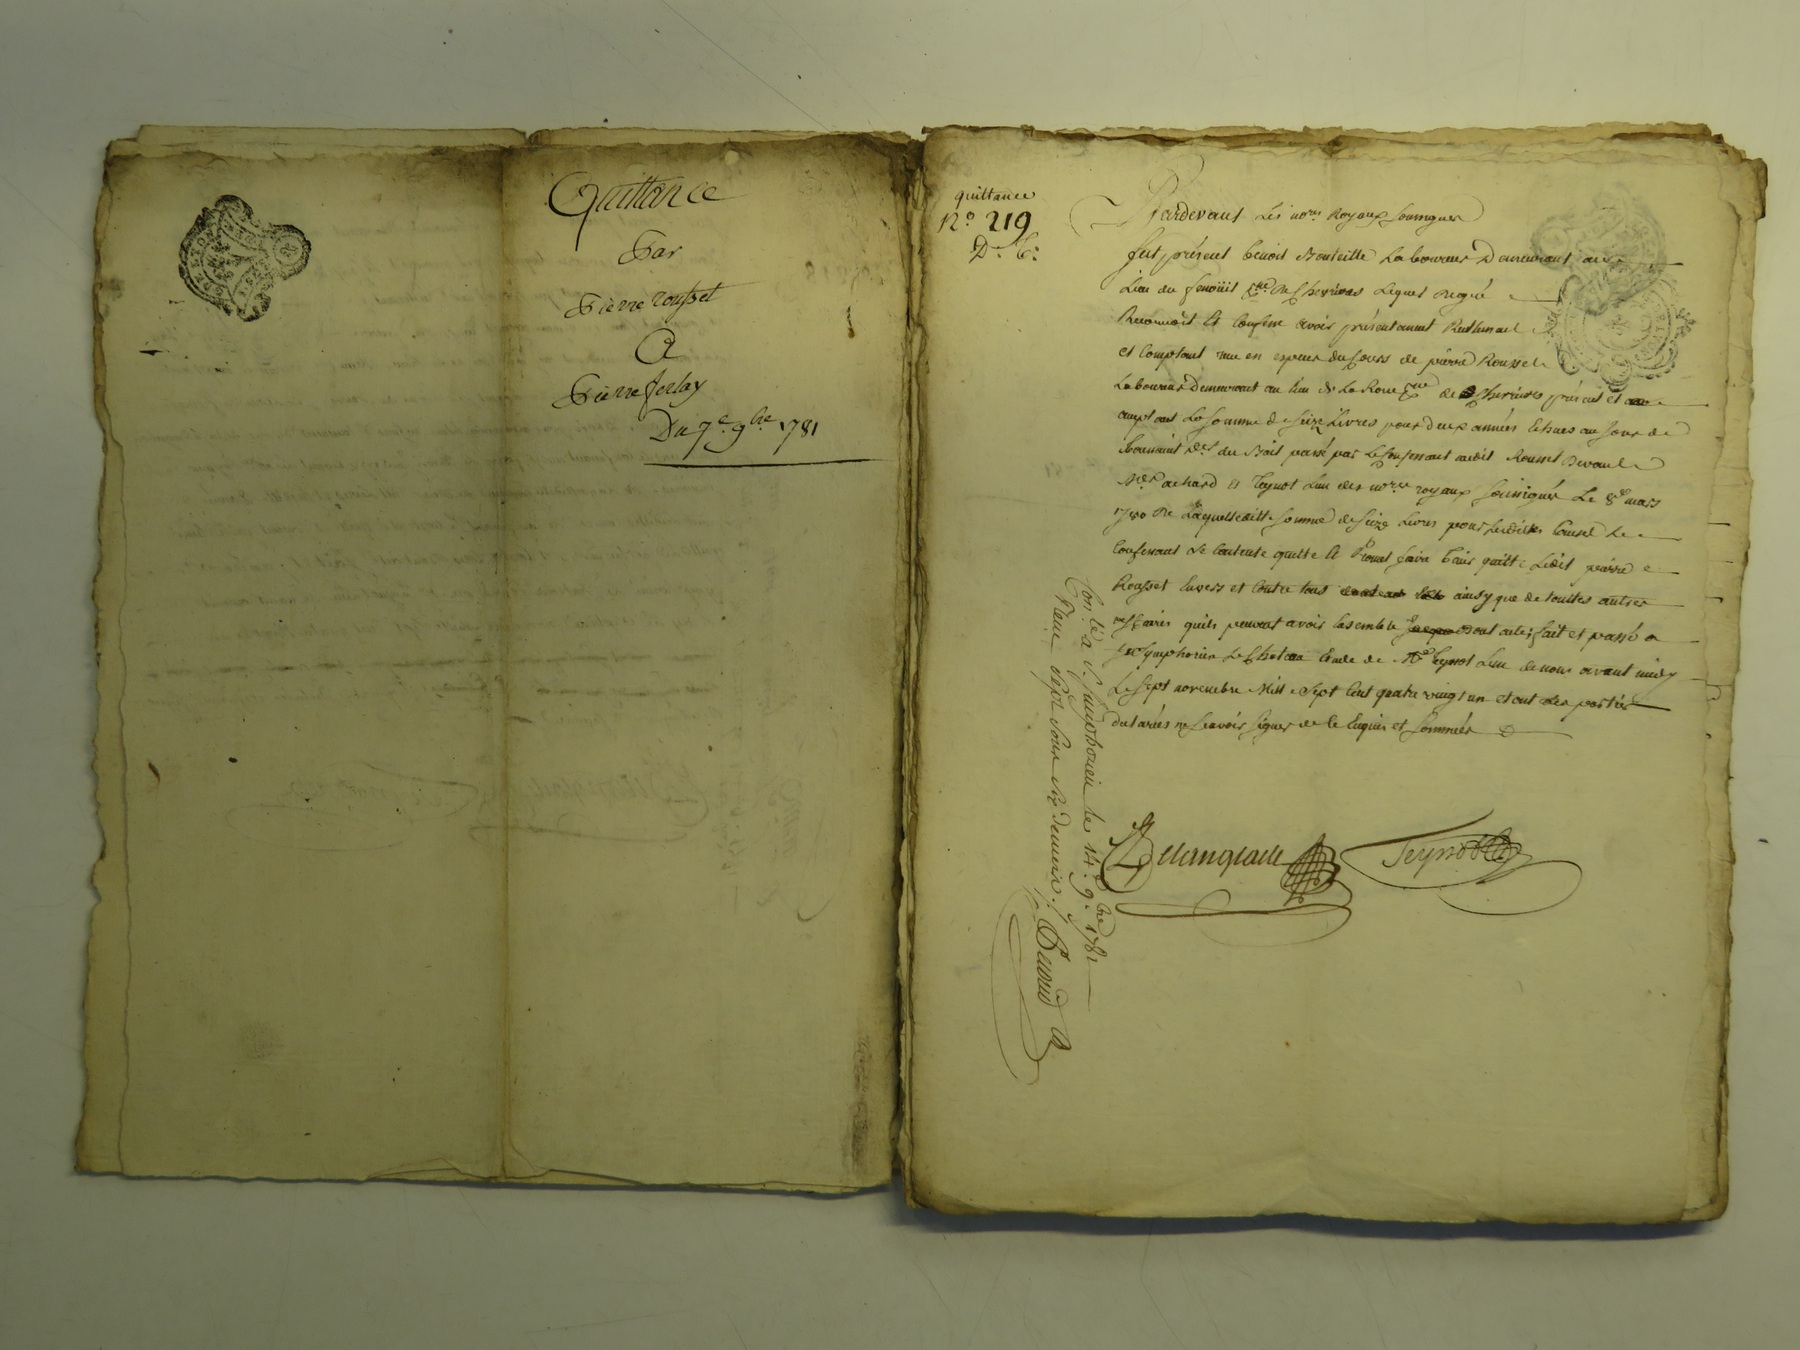 Quittance
Par
Pierre rousset
A
Pierre ferlay
Du 7e 9bre 1781
quittance
No 219
D. C.
Pardevant Les nores Royaux soussignes
fut présent benoit Bouteille Laboureur Demeurant au
Lieu du fenoüil Lequel De gré
Reconnoit Et Confesse avoir présentement Reellement
et Comptant reçu en especes du Cours de pierre Rousset
Laboureur demeurant au lieu de La Roue de présent et
acceptant La Somme de Seize Livres pour deux années Echues au jour de
du Bail passé par Le Confessant audit Rousset Devant
achard et Teynot L'un des nores royaux soussignés Le 8e mars
1780 De Laquelle ditte somme de Seize Livres pour Le
Confessant Se Contente quitte Et Promet faire tenir quitte Ledit pierre
Rousset Envers et Contre tous ainsy que de touttes autres
affaires quils peuvent avoir Ensemble dont acte; fait et passé a
St Symphorien Le Chateau Etude de Me Teynot L'un de nous avant midy
Le Sept novembre Mill Sept Cent quatre vingt un et ont Les parties
declarées ne Scavoir Signer de ce Enquis et Sommées
Delanglade Teynot
Con.lé a St Simphorien le 14e 9bre 1781
Reçu Sept Sous Six deniers